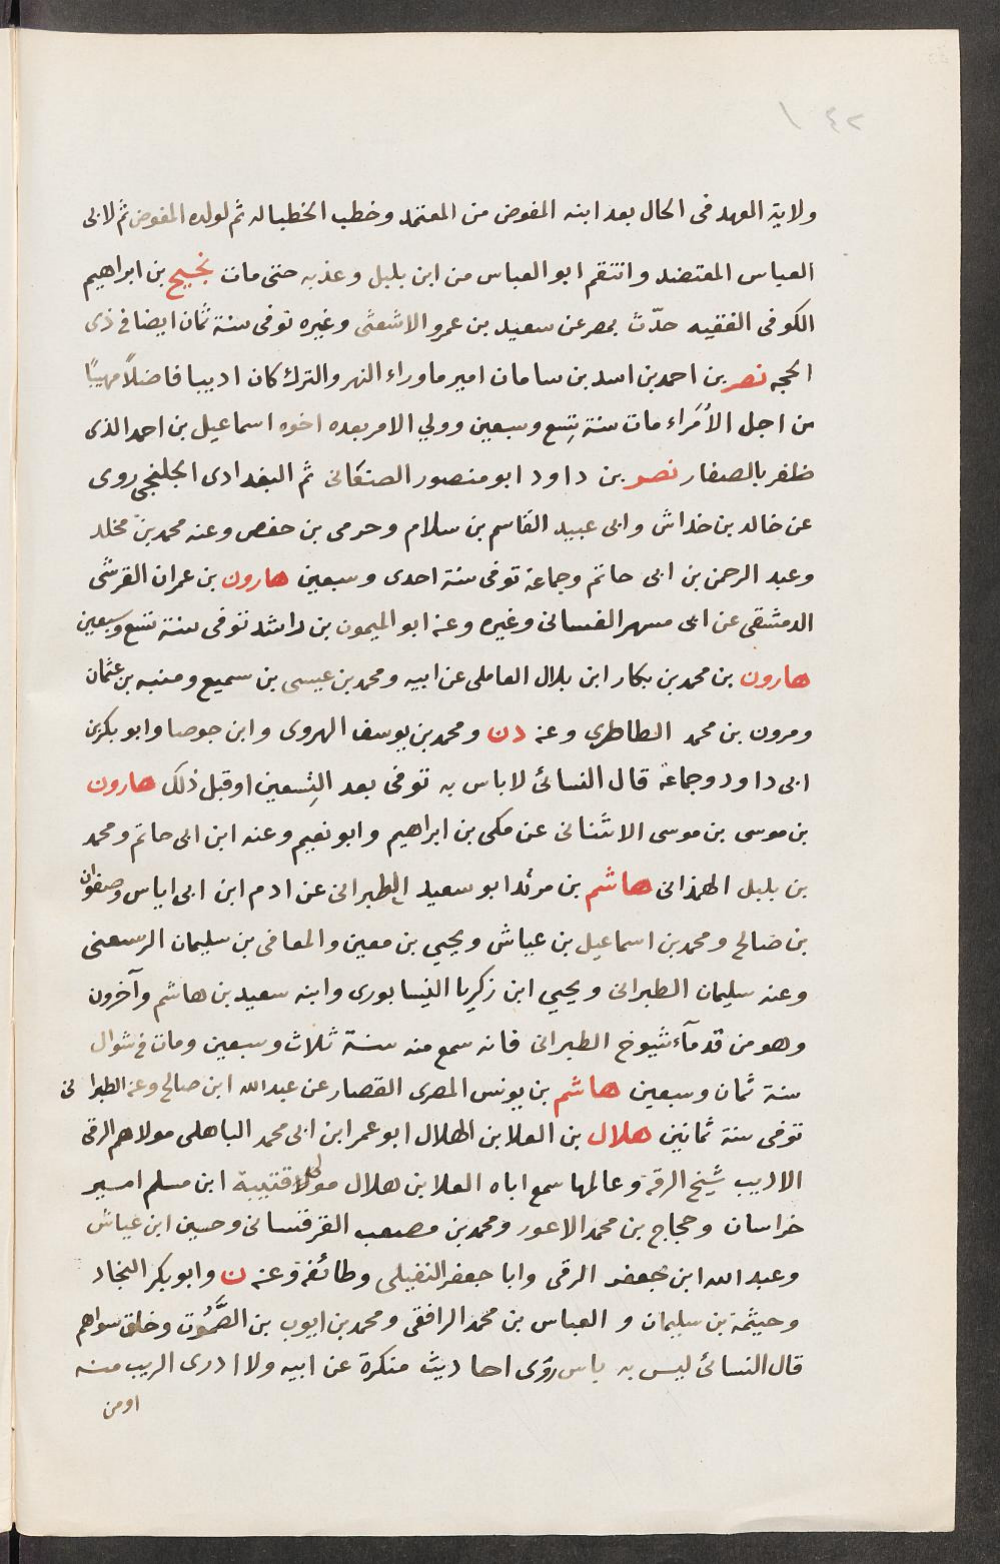 ولاية العهد فى الحال بعد ابنه المفوض من المعتمد وخطب الخطبا له ثم لولده المفوض ثم لابى
العباس المعتضد وانتقم ابو العباس من ابن بلبل وعذبه حتى مات نجيح بن ابراهيم
الكوفى الفقيه حدّث بمصر عن سعيد بن عمرو الاشعثى وغيره توفى سنة ثمان ايضا فى ذى
الحجه نصر بن احمد بن اسد بن سامان امير ماوراء النهر والترك كان اديبا فاضلاً مهيبًا
من اجل الأمَراء مات سنة تِسع وسبعين وولي الامر بعده اخوه اسماعيل بن احمد الذى
ظفر بالصفار نصر بن داود ابو منصور الصنعانى ثم البغدادى الجلنجى روى
عن خالد بن خداش وابى عبيد القاسم بن سلام وحرمى بن حفص وعنه محمد بن مخلد
وعبد الرحمن بن ابى حاتم وجماعة توفى سنة احدى وسبعين هارون بن عمران القرشى
الدمشقى عن ابى مسهر الغسانى وغيره وعنه ابو الميمون بن راشد توفى سنة تسع وسبعين
هارون بن محمد بن بكار ابن بلال العاملى عن ابيه ومحمد بن عيسى بن سميع ومنبه بن عثمان
ومرون بن محمد الطاطرى وعنه دن ومحمد بن يوسف الهروى وابن جوصا وابو بكر بن
ابى داود وجماعة قال النسائ لا باس به توفى بعد التِسعين او قبل ذلك هارون
بن موسى بن موسى الاشنانى عن مكى بن ابراهيم وابو نعيم وعنه ابن ابى حاتم ومحمد
بن بلبل الهمذانى هاشم بن مرثد ابو سعيد الطبرانى عن ادم ابن ابى اياس وصفوان
بن صالح ومحمد بن اسماعيل بن عياش ويحيي بن معين والمعافى بن سليمان الرسعنى
وعنه سليمان الطبرانى ويحيي ابن زكريا النيسابورى وابنه سعيد بن هاشم وآخرون
وهو من قدمآء شيوخ الطبرانى فانه سمع منه سنة ثلاث وسبعين ومات فى شوال
سنة ثمان وسبعين هاشم بن يونس المصرى القصار عن عبد الله ابن صالح وعنه الطبرانى
توفى سنة ثمانين هلال بن العلا بن الهلال ابو عمر ابن ابى محمد الباهلى مولاهم الرقى
الاديب شيخ الرقة وعالمها سمع اباه العلا بن هلال مولى قتيبة ابن مسلم امير
خراسان وحجاج بن محمد الاعور ومحمد بن مصعب القرقسانى وحسين ابن عياش
وعبد الله ابن جعفر الرقى وابا جعفر النفيلى وطائفة وعنه ن وابو بكر النجاد
وحيثمة بن سليمان و العباس بن محمد الرافقى ومحمد بن ايوب بن الصَّمُوت وخلق سواهم
قال النسائ ليس به باس روَى احاديث منكرة عن ابيه ولا ادرى الريب منه
او من